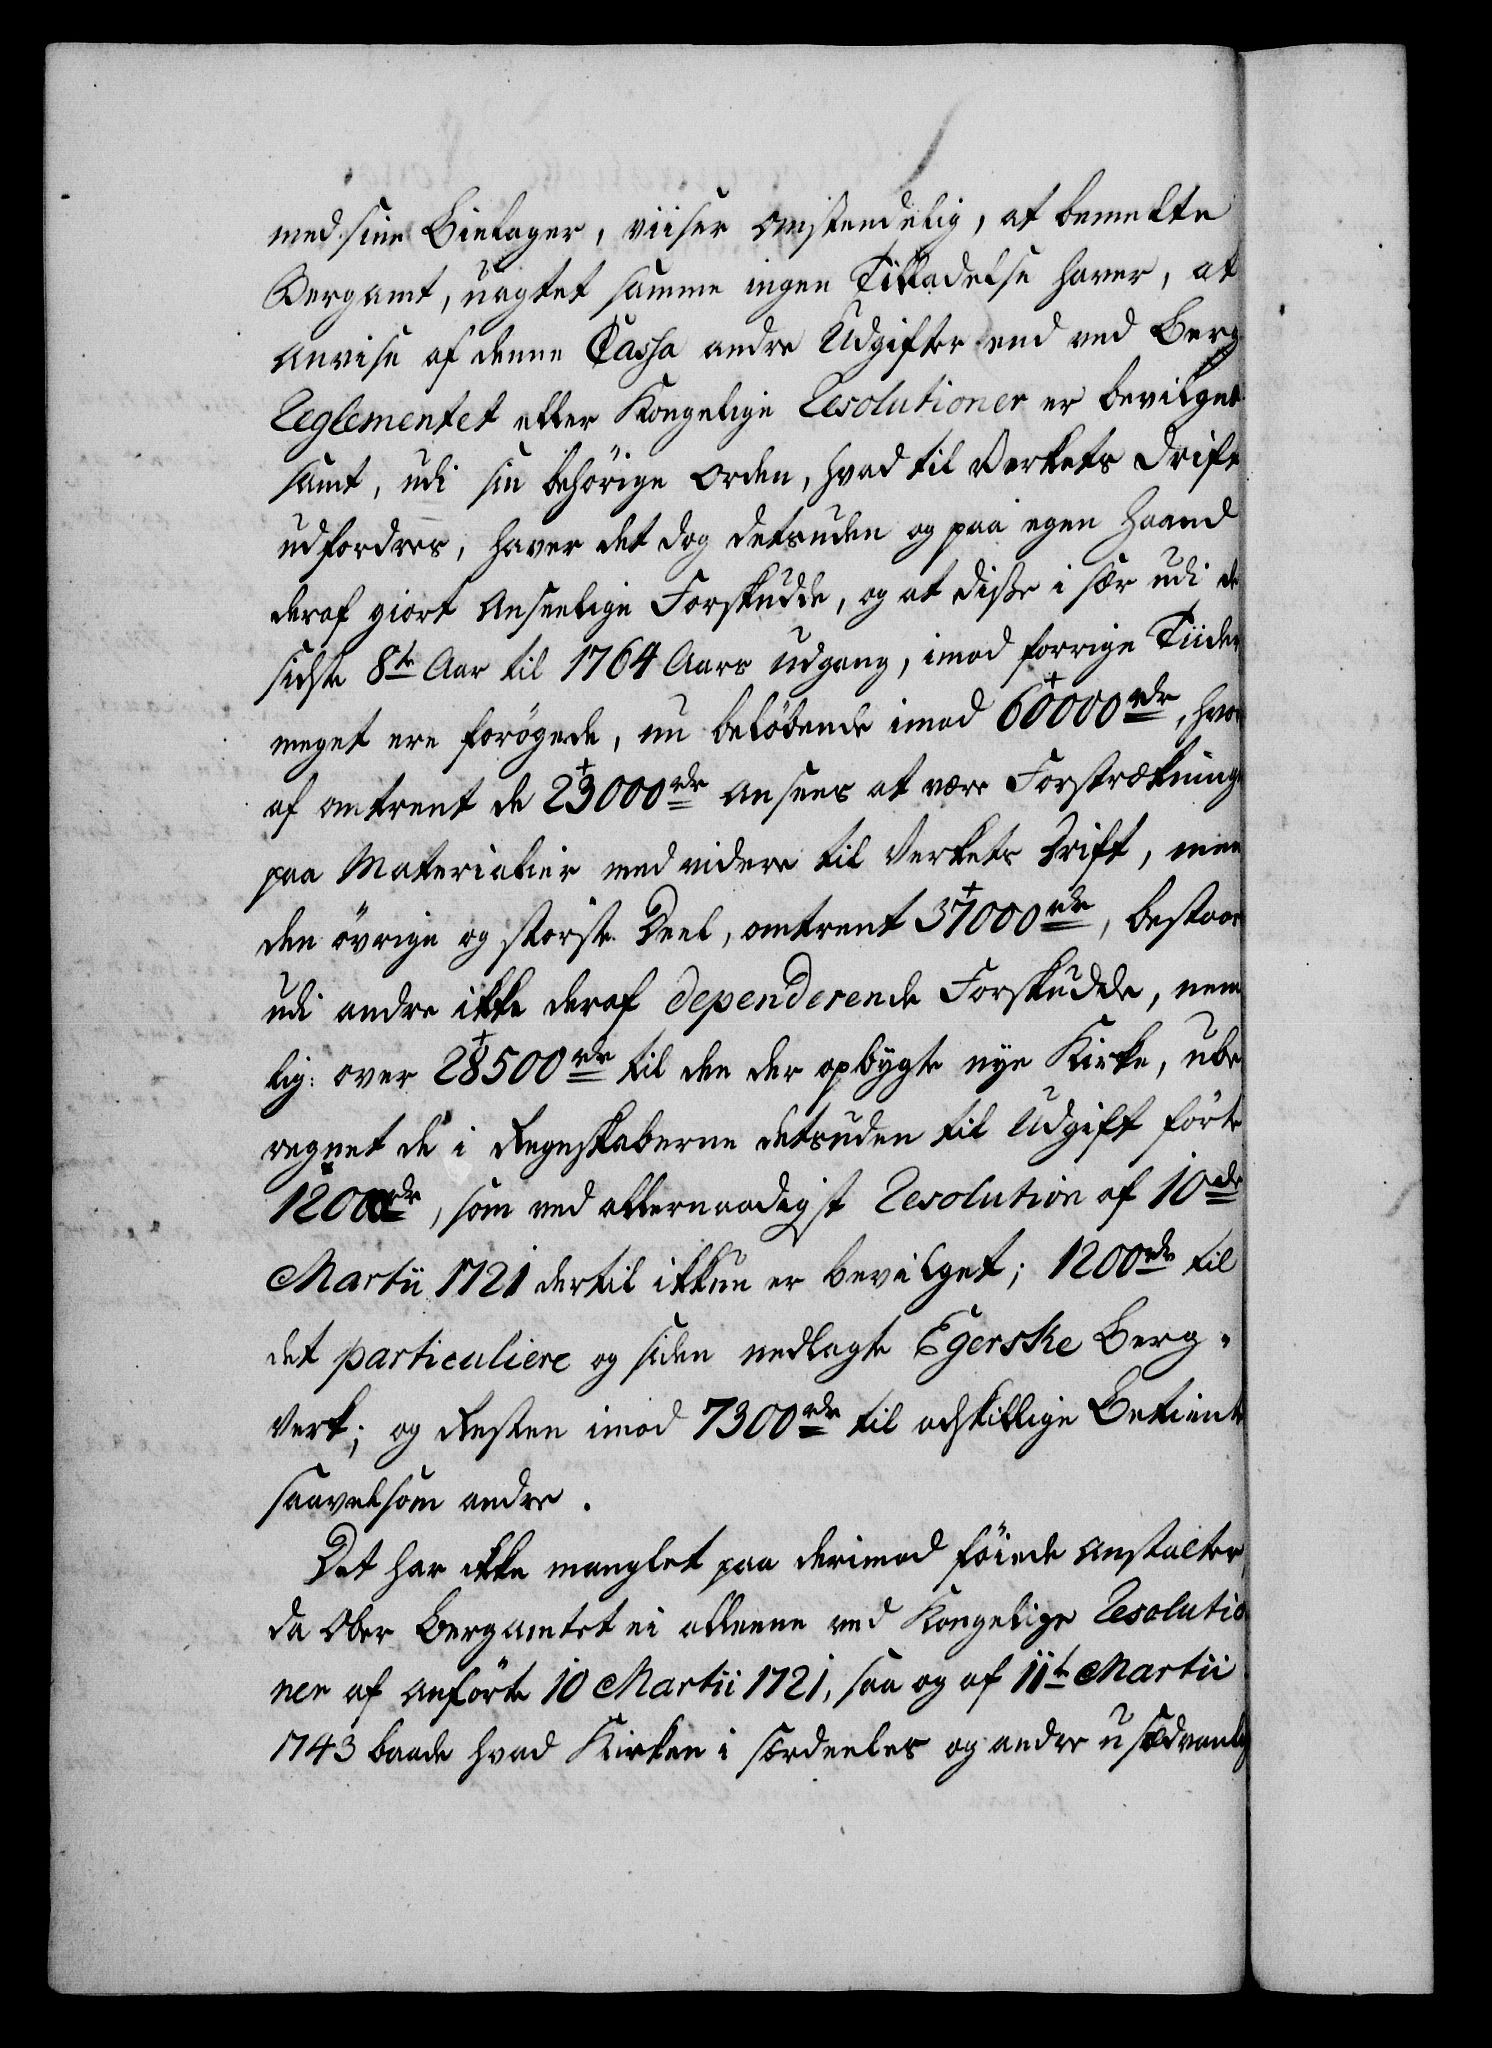 med sine Bielager, viiser omstendelig, at bemelte
Bergamt, uagtet samme ingen Tilladelse haver, at
anvise af denne Cassa andre Udgifter end ved Berg
Reglementet eller Kongelige Resolutioner er bevilget
samt, udi sin behörige Orden, hvad til Verkets Drift
udfordres, haver det dog desuden og paa egen Haand
deraf giort anseelige Forskudde, og at disse i sær udi de
sidste 8te Aar til 1764 Aars Udgang, imod forrige Tiider
meget ere forögede, nu belöbende imod 60000 rdr, hvor
af omtrent de 23000 rdr ansees at være Forstrækninge
paa Materialier med videre til Verkets Drift, men
den övrige og störste Deel, omtrent 37000 rdr, bestaar
udi andre ikke deraf dependerende Forskudde, nem
lig: over 28500 rdr til den der opbygte nye Kirke, ube
regnet de i Regnskaberne desuden til Udgift förte
12000 rdr, som ved allernaadigst Resolution af 10de
Martii 1721 dertil ikkun er bevilget; 1200 rdr til
det particuliere og siden nedlagte Egerske Berg-
Verk; og Resten imod 7300 rdr til adskillige Betiente
saavelsom andre.
Det har ikke manglet paa derimod föiede Anstalter,
da Ober Bergamtet ei alleene ved Kongelige Resolutio
ner af anförte 10 Martii 1721, saa og af 11te Martii
1743 baade hvad Kirken i særdeeles og andre usædvanlig